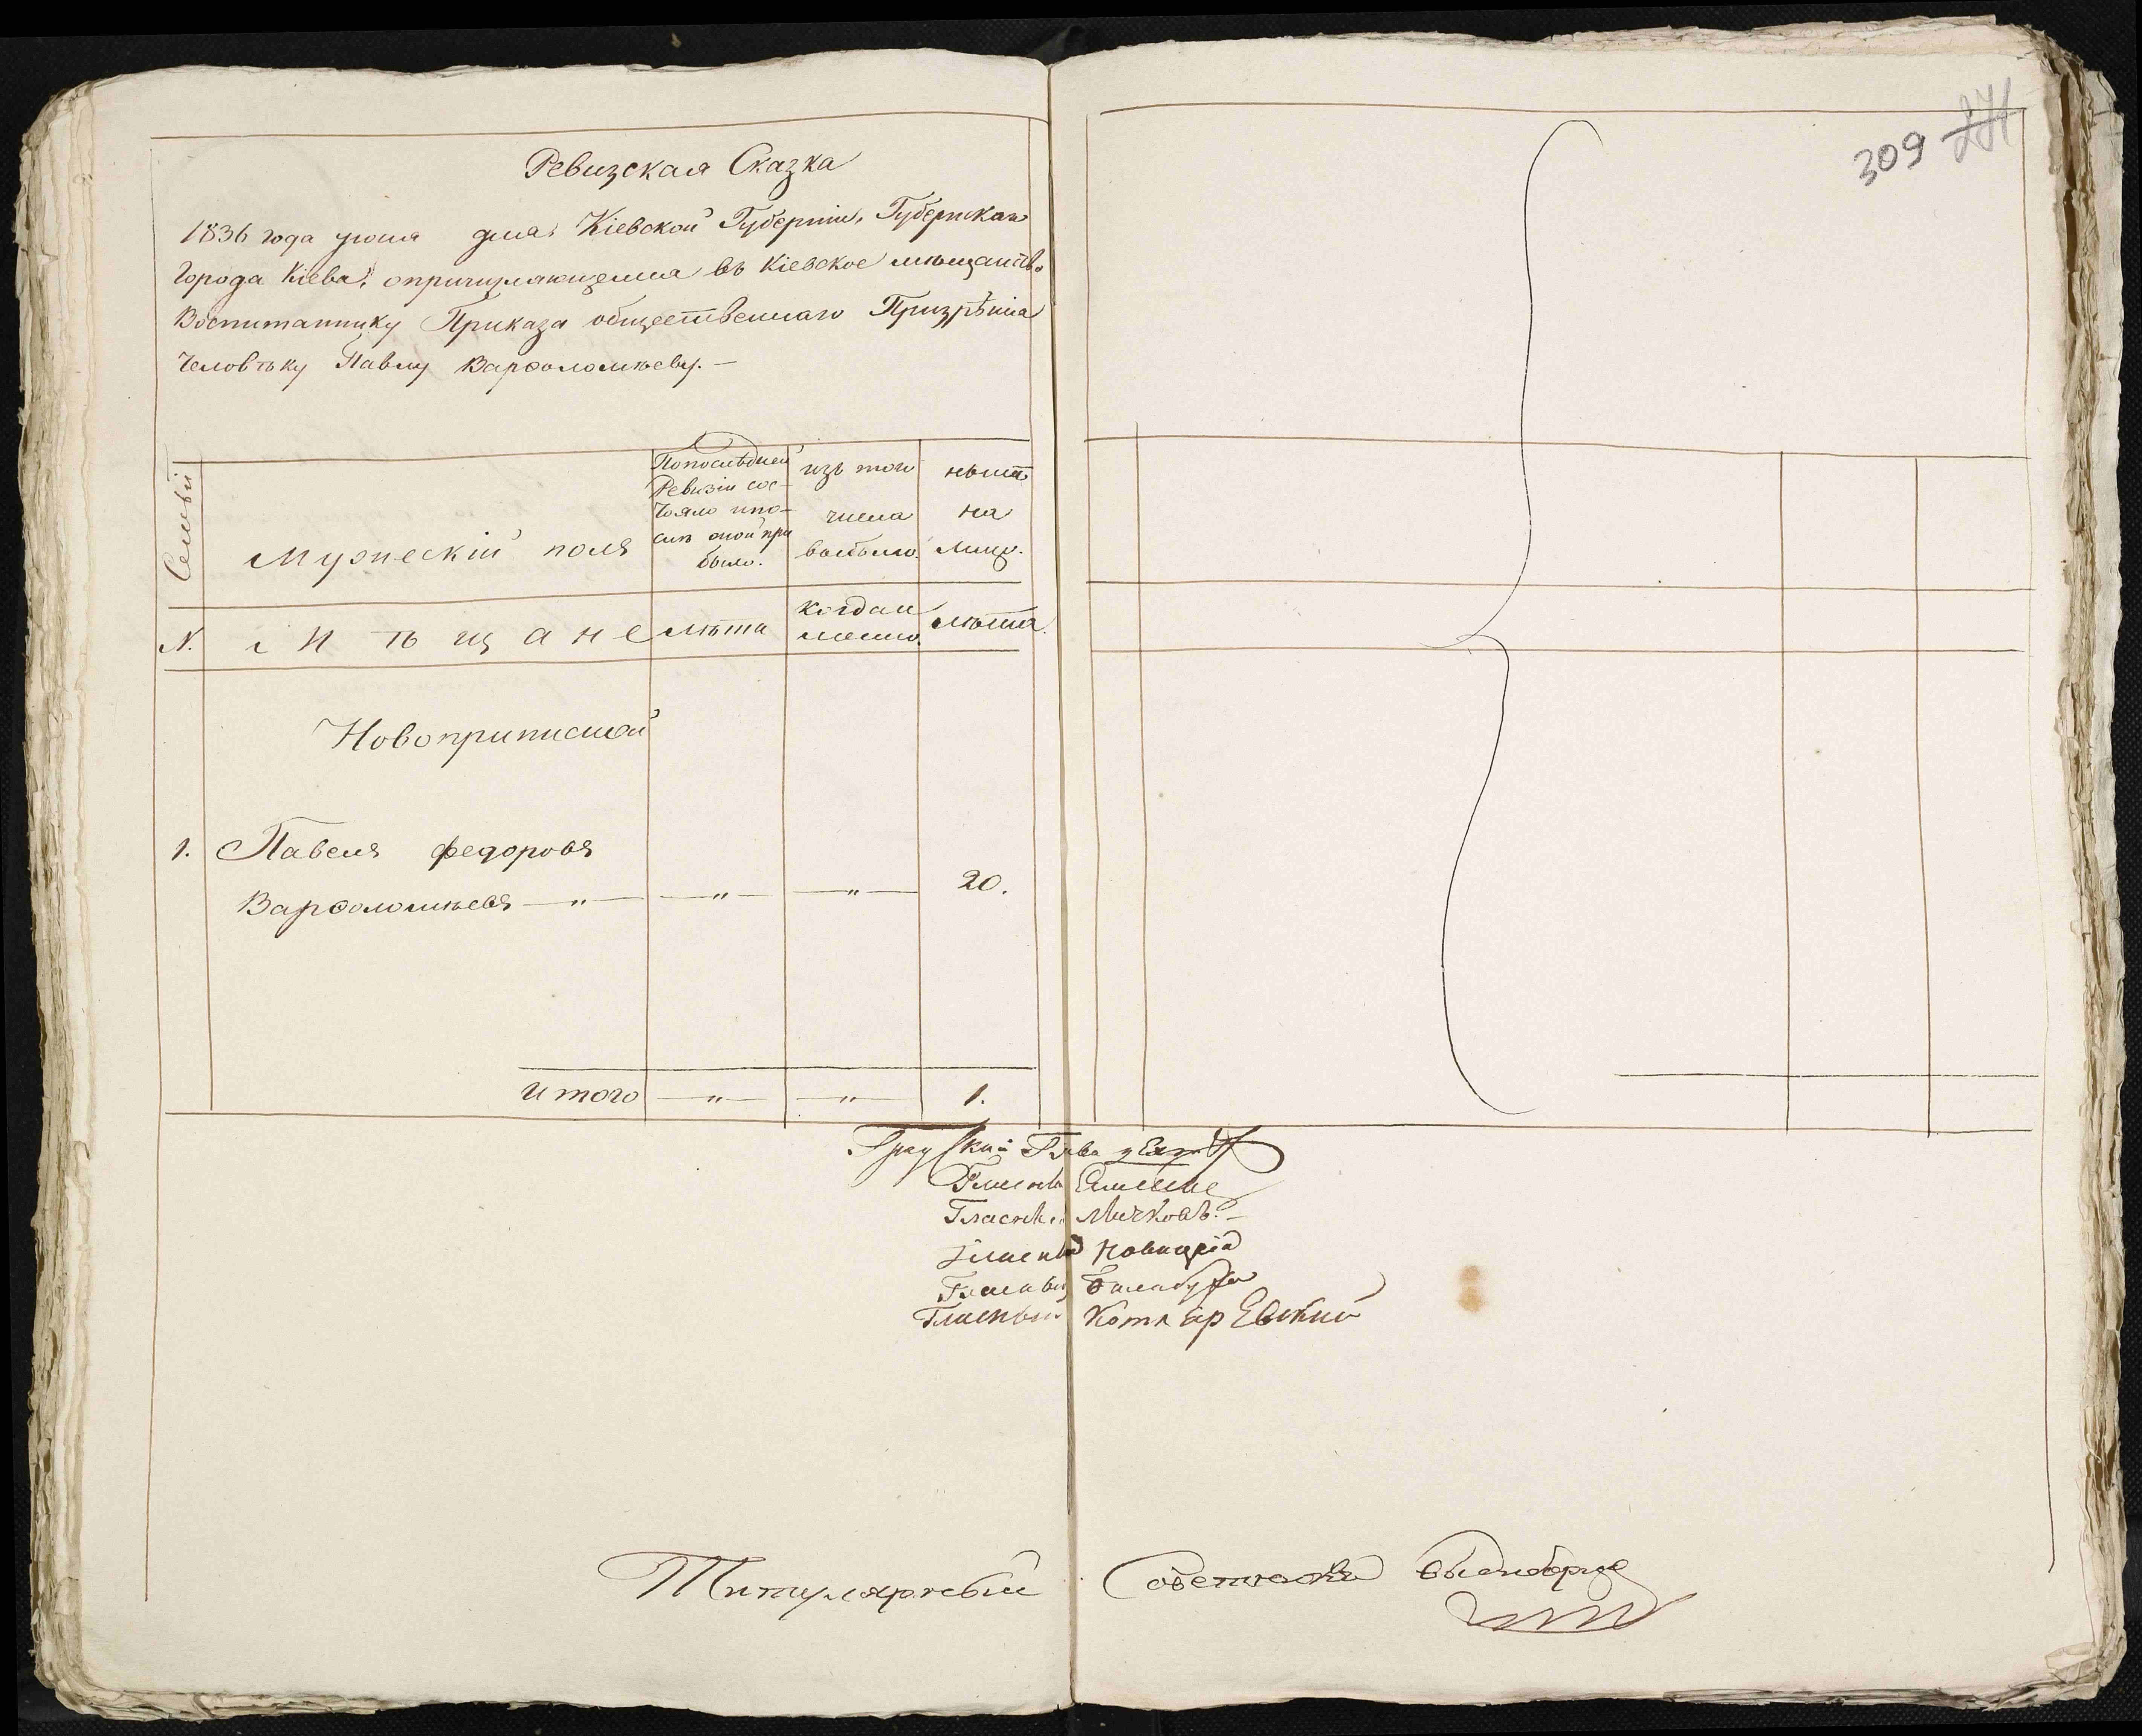 309 271
Ревизская Сказка
1836 года июня дня Кіевской Губерніи, Губернскаго
Города Кіева, опричисляющемся въ Кіевское мѣщанство
Воспитаннику Приказа общественнаго Призрѣнія
Человѣку Павлу Варѳоломѣеву. —
Семьи
Мужескій полъ
По послѣдней
Ревизіи сос-
тояло и по-
слѣ оной при
было.
изъ того
числа
выбыло.
нынѣ
на
лицо.
N.
Мѣщане
лѣта
когда и
менно.
лѣта.
Новоприписной
1. Павелъ Федоровъ
Варѳоломѣевъ — " — — " — — " — 20.
Итого — " — — " — 1.
Градской Глава
Гласный
Гласный Мичковъ. —
Гласный Новицкій
Гласный Балабуха
Гласный Котляревский
Титулярный Советникъ